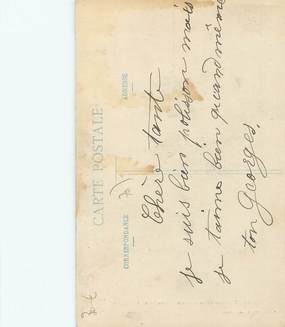 CARTE POSTALE
CORRESPONDANCE
ADRESSE
Chère tante
je suis bien polisson mais
je t'aime bien quand même
ton Georges.